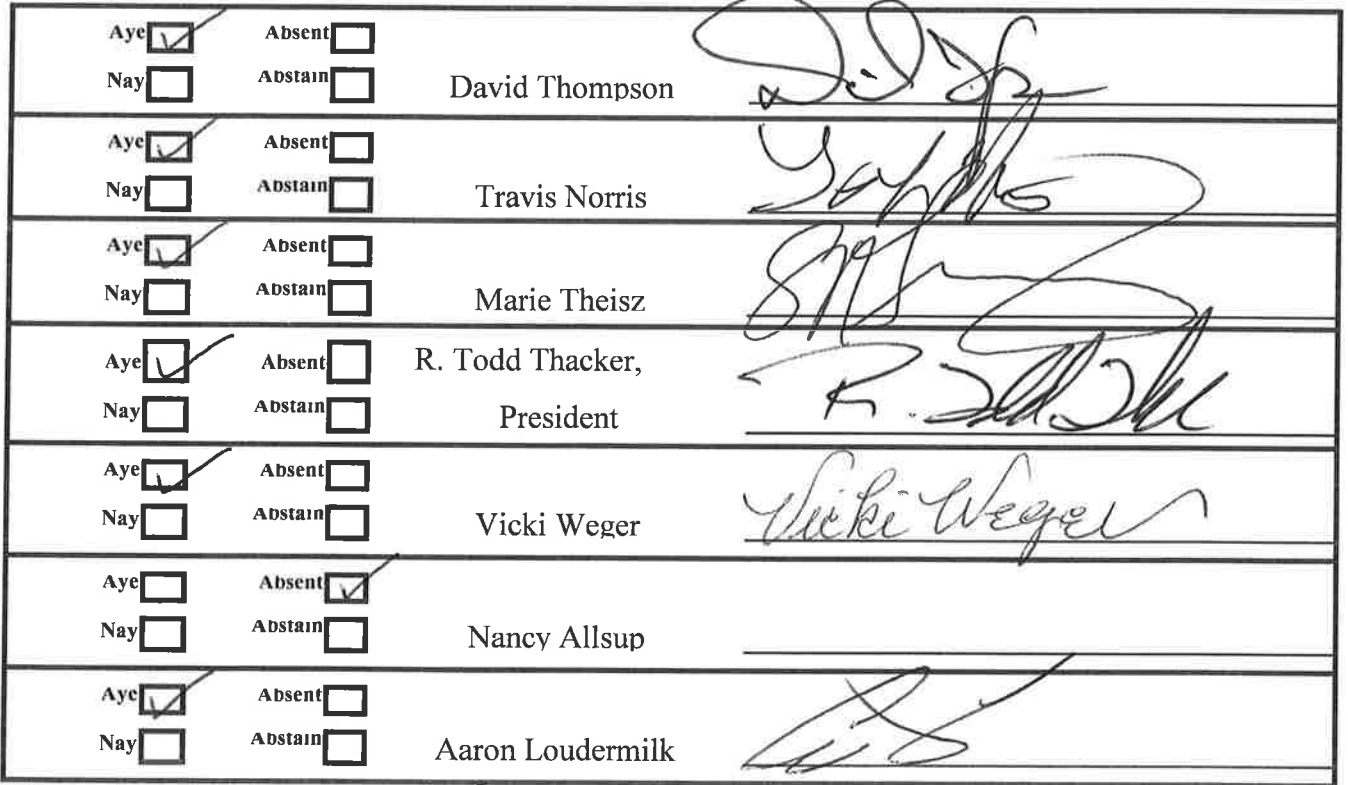 Aye Absent
Nay Abstain David Thompson
Aye Absent
Nay Abstain Travis Norris
Aye Absent
Nay Abstain Marie Theisz
Aye Absent R. Todd Thacker,
Nay Abstain President
Aye Absent
Nay Abstain Vicki Weger Vicki Weger
Aye Absent
Nay Abstain Nancy Allsup
Aye Absent
Nay Abstain Aaron Loudermilk